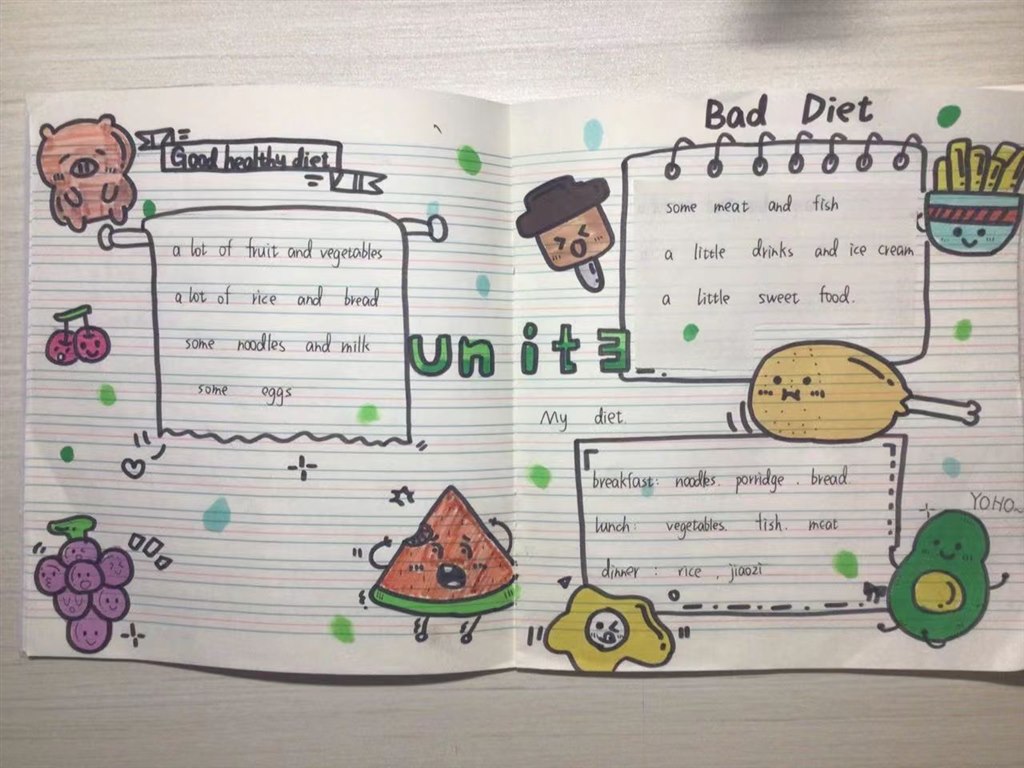 Good healthy diet
a lot of fruit and vegetables
a lot of rice and bread
some noodles and milk
some eggs
Unit3
Bad Diet
some meat and fish
a little drinks and ice cream
a little sweet food.
My diet.
breakfast: noodles. porridge. bread
lunch: vegetables. fish. meat
dinner: rice, jiaozi
YOHO~